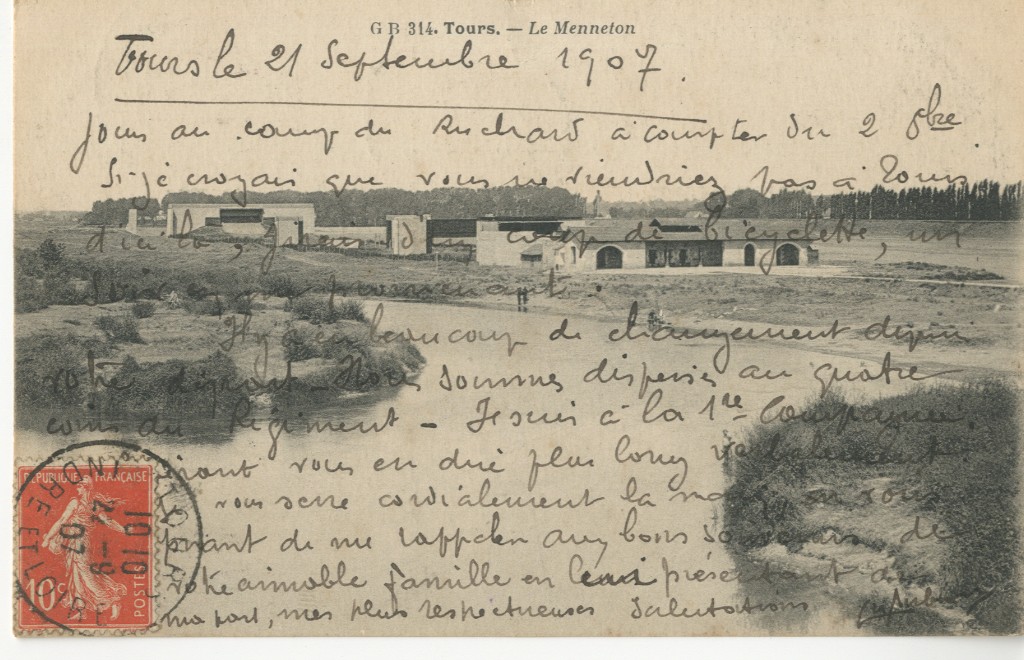 G B 314. Tours. — Le Menneton
Tours le 21 Septembre 1907.
Jours au camp du Ruchard à compter du 2 8bre
Si je croyais que vous ne viendriez pas à Tours
d'ici là, j'irais d'un coup de bicyclette, un
soir en me promenant.
Il y a eu beaucoup de changement depuis
votre départ - Nous sommes dispersés au quatre
coins du Régiment - Je suis à la 1re Compagnie.
vous en dire plus long verbalement
vous serre cordialement la main en vous
priant de me rappeler aux bons souvenirs de
votre aimable famille en leur présentant de
ma part, mes plus respectueuses salutations
RÉPUBLIQUE FRANÇAISE
10c
POSTES
INDRE ET LOIRE